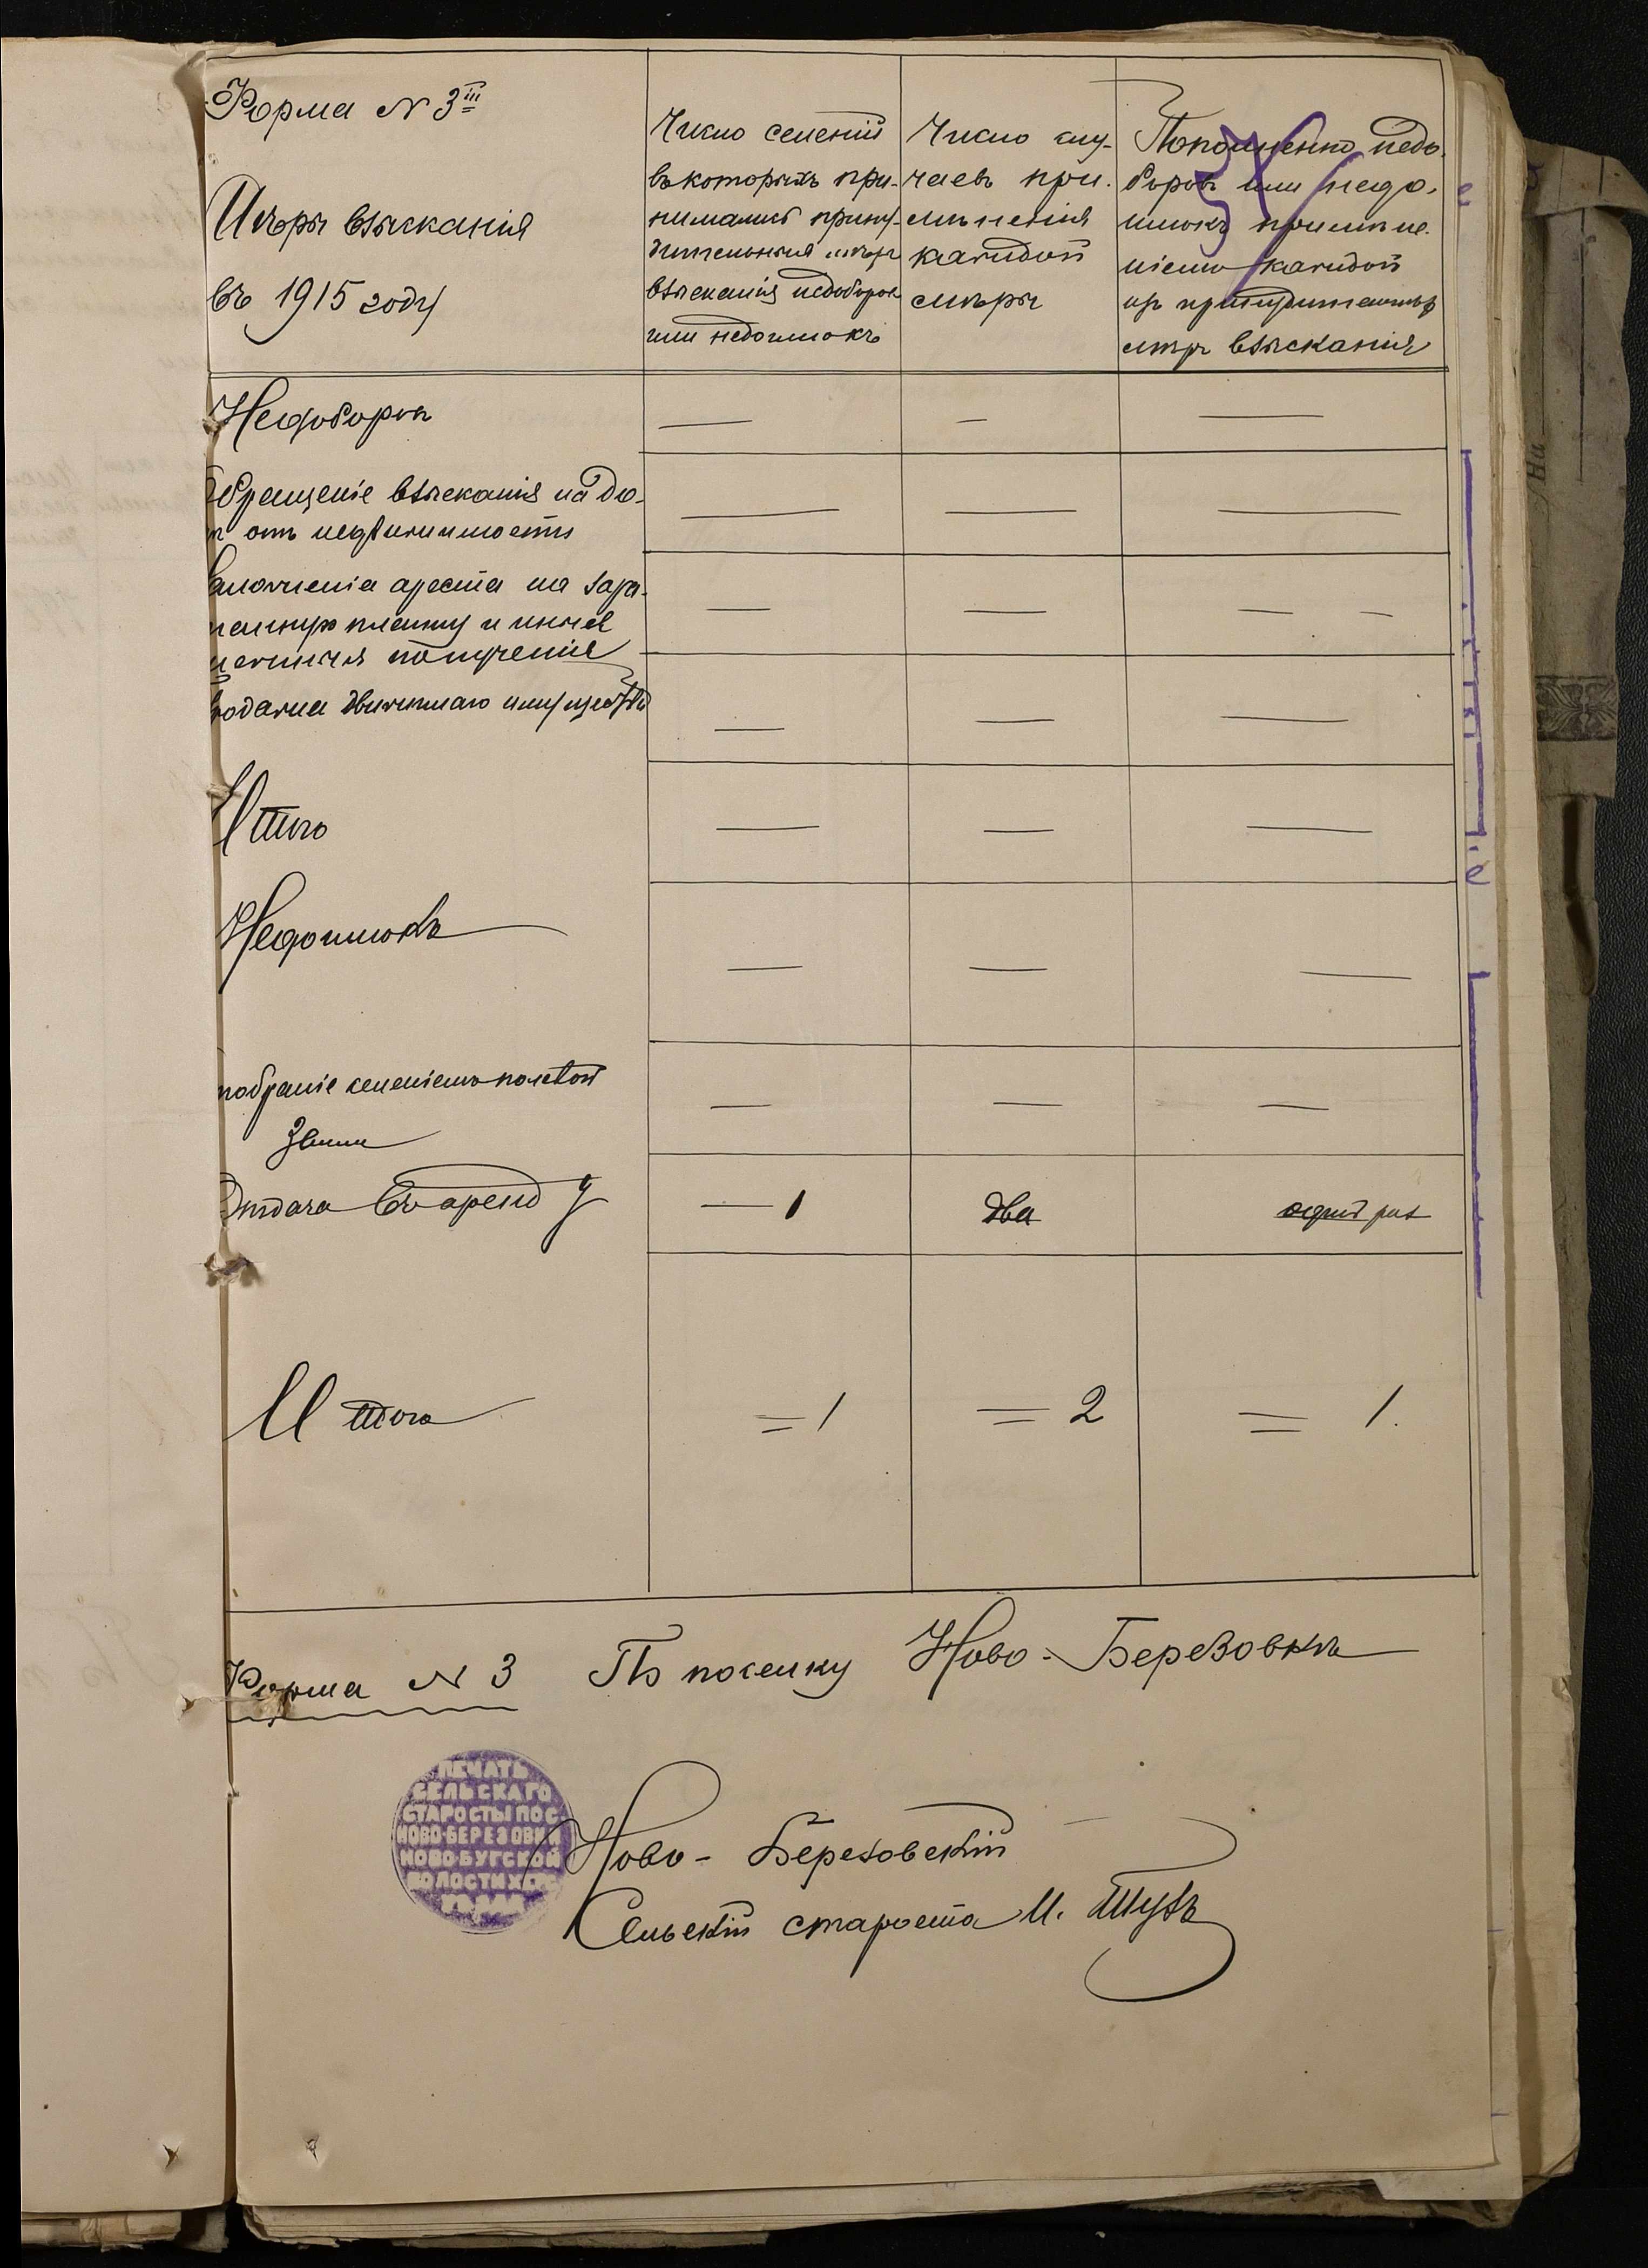 Форма N 3 III
Мѣры взысканія
въ 1915 году
Число селеній
въ которыхъ при-
нимались прину-
дительныя мѣры
взысканія недоборов
или недоимокъ
Число слу-
чаевъ при-
мѣненія
каждой
мѣры
Пополненно недо-
боровъ или недо-
имокъ примѣне-
ніемъ каждой
изъ принудительныхъ
мѣръ взысканія
Недоборовъ
бращеніе взысканія на до-
ъ отъ недвижимости
аложенія ареста на зара-
ную плату и иныя
получения
родажа движимаго имущества
Итого
Недоимокъ
обраніе селеніемъ полевой
земли
Отдача въ аренду
1
два
один раз
Итого
= 1
= 2
= 1.
Форма N 3 По поселку Ново-Березовкѣ
ПЕЧАТЬ
СЕЛЬСКАГО
СТАРОСТЫ ПОС.
НОВО-БЕРЕЗОВКИ
НОВО-БУГСКОЙ
ВОЛОСТИ ХЕР
Ново-Березовскій
Сельскій староста И.